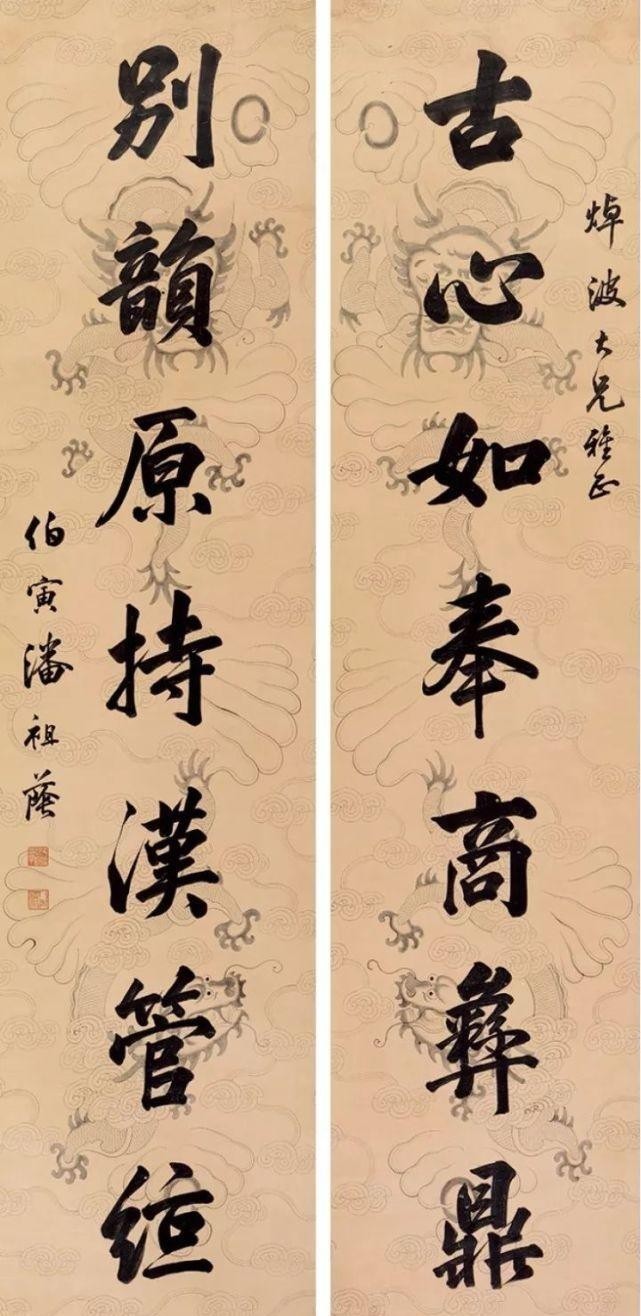 焯波大兄雅正
古心如奉商彝鼎
别韻原持漢管
伯寅潘祖蔭